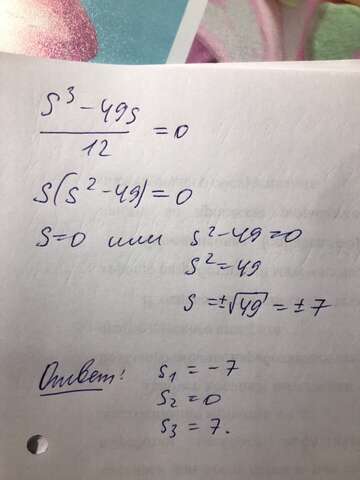 s³ - 49s
12
= 0
s(s² - 49) = 0
s = 0 или s² - 49 = 0
s² = 49
s = ±√49 = ±7
Ответ: s₁ = -7
s₂ = 0
s₃ = 7.